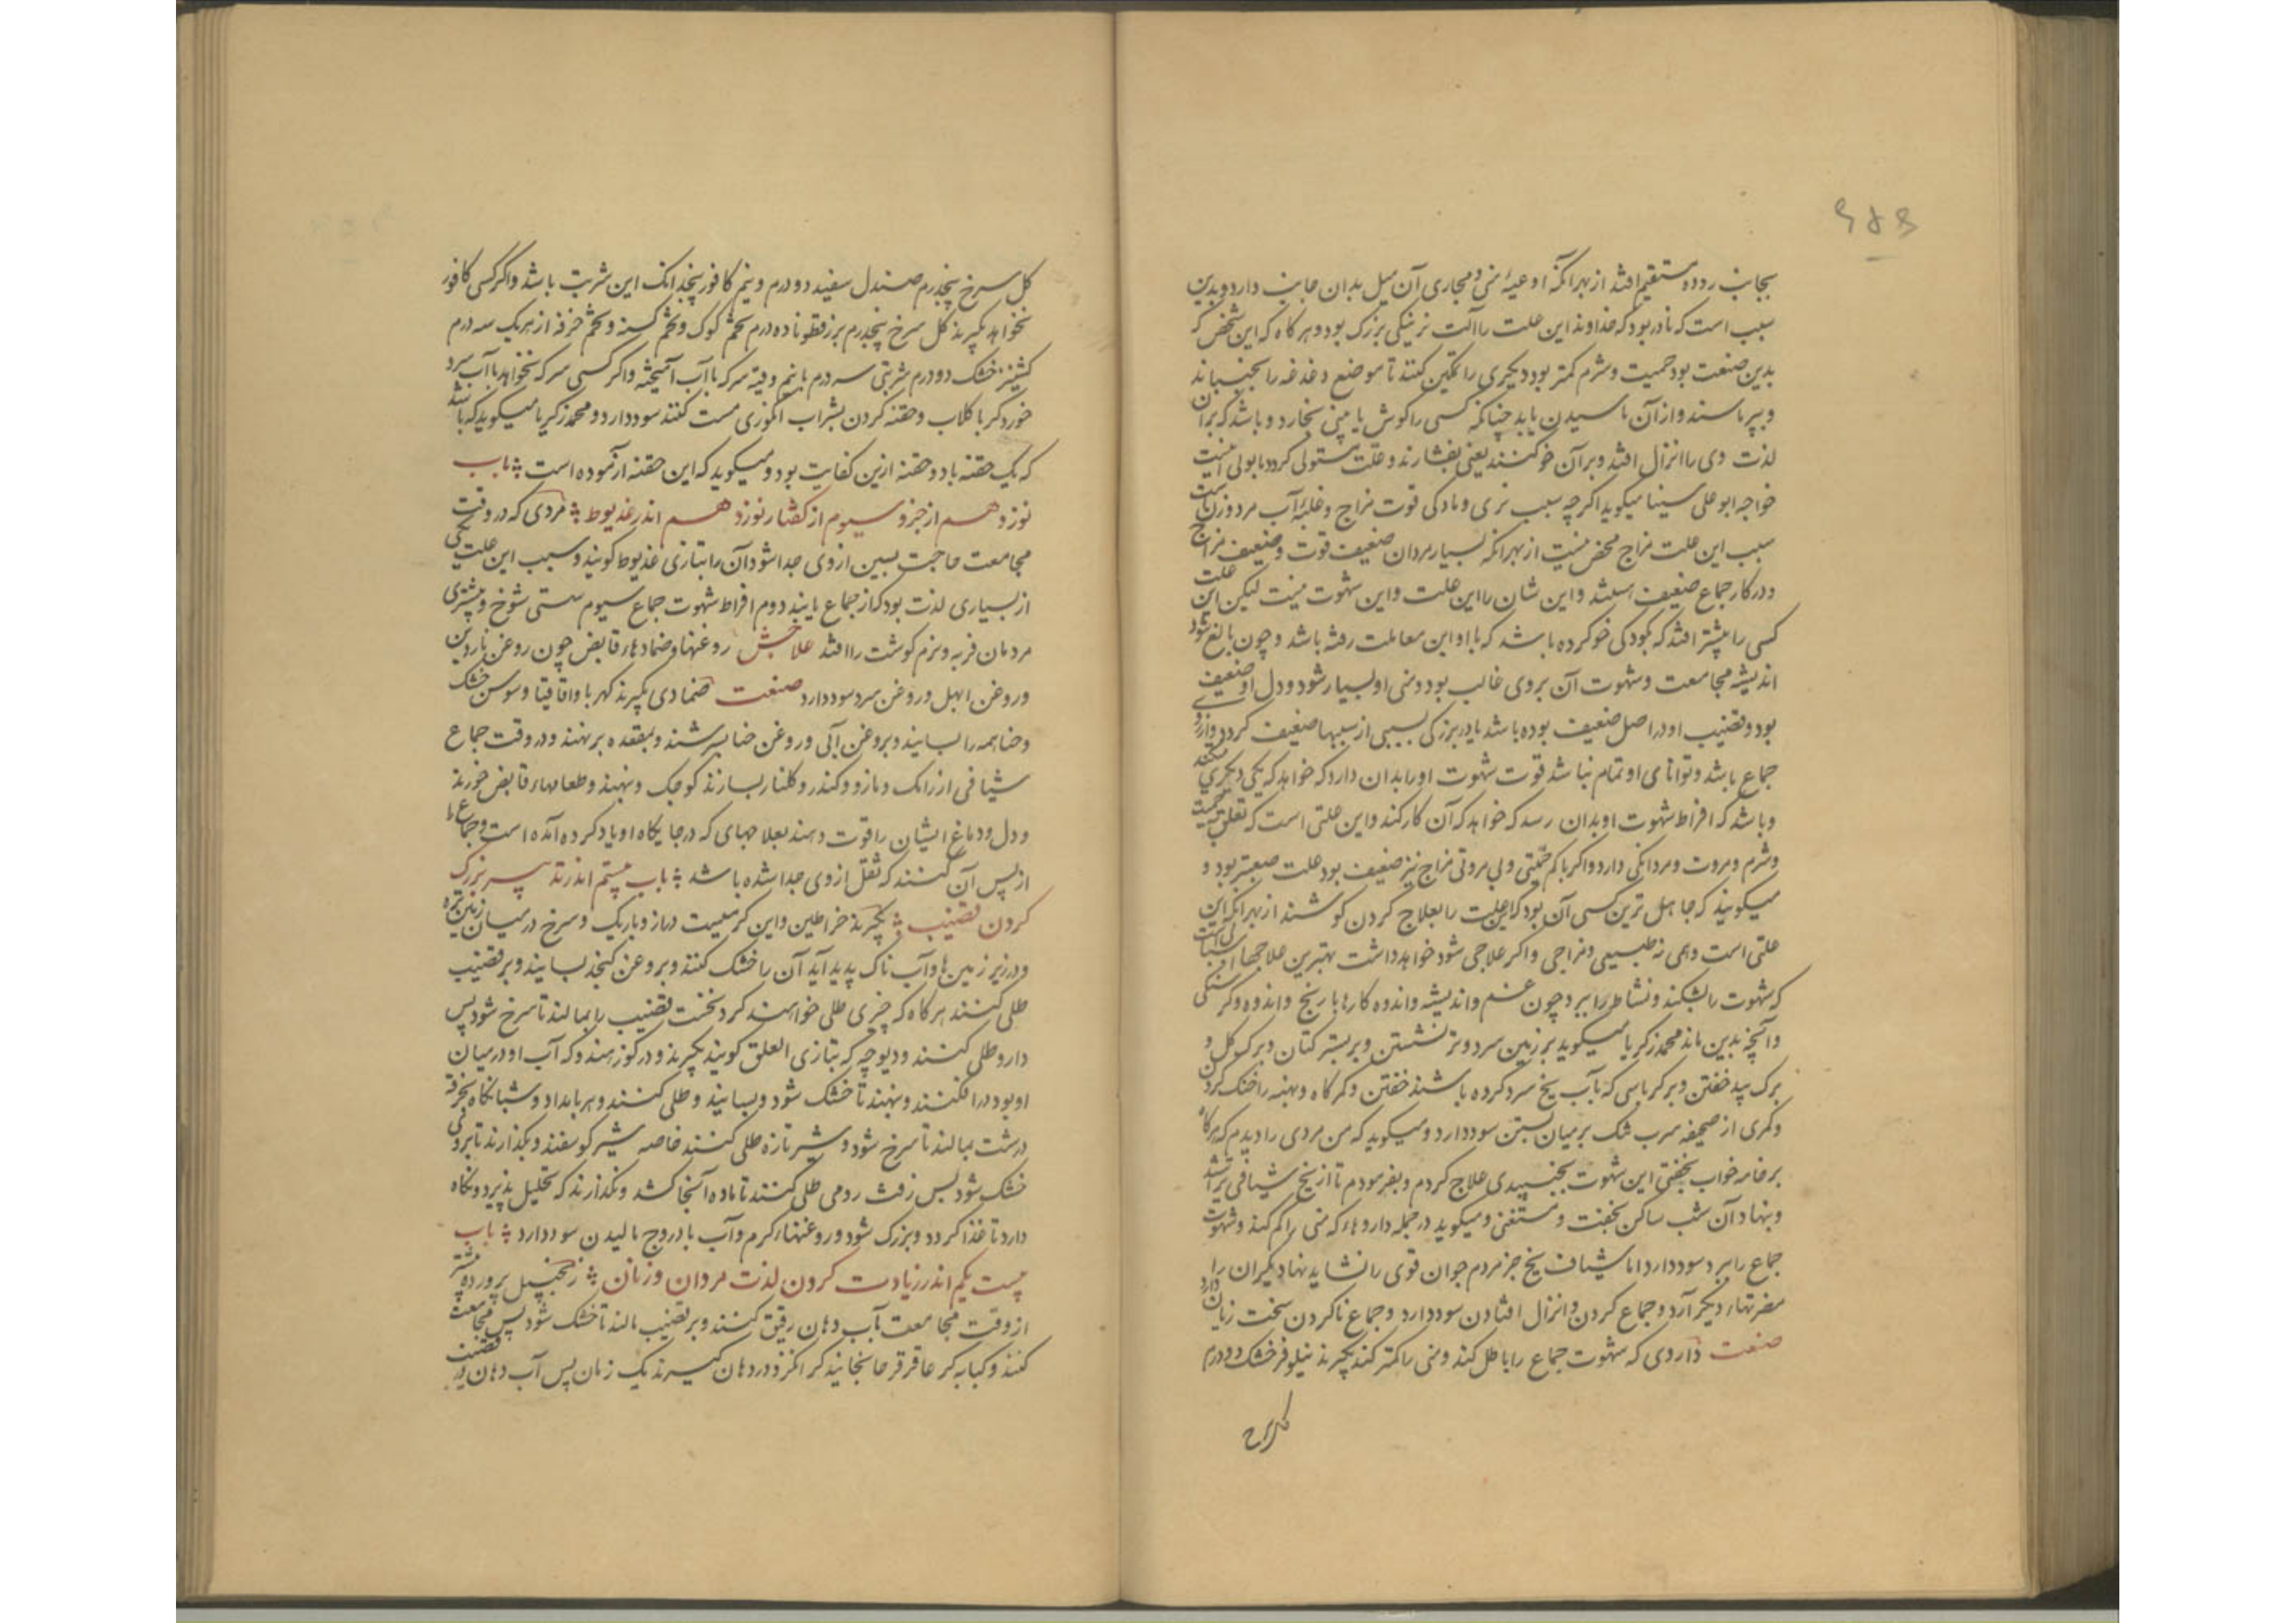 بجانب روده مستقیم افتد از بهر آنکه اوعیهٔ منی و مجاری آن میل بدان جانب دارد و بدین
سبب است که نادر بود که خداوند این علت را آلت نرینگی بزرک بود و هر کاه که این شخص که
بدین صنعت بود حمیت و شرم کمتر بود دیکری را تمکین کند تا موضع دغدغه را بجنباند
و بپرماسند و از آن ماسیدن یابد چنانکه کسی را کوش یا بینی بخارد و باشد که بر آن
لذت وی را انزال افتد و بر آن خو کنند یعنی بفشارند و علت مستولی کردد
خواجه ابو علی سینا میکوید اکر چه سبب نری و مادکی قوت مزاج و غلبهٔ آب مرد و زن است
سبب این علت مزاج محض نیست از بهر آنکه بسیار مردان ضعیف قوت و ضعیف مزاج
و در کار جماع ضعیف باشند و ایشان را این علت و این شهوت نیست لیکن این علت
کسی را بیشتر افتد که بکودکی خو کرده باشد که با او این معاملت رفته باشد و چون بالغ شود
اندیشه مجامعت و شهوت آن بر وی غالب بود و منی او بسیار شود و دل او ضعیف
بود و قضیب او در اصل ضعیف بوده باشد یا در بزرکی بسببی از سببها ضعیف کردد و آرزوی
جماع باشد و توانائی او تمام نباشد قوت شهوت او را بدان دارد که خواهد که یکی دیکری میکند
و باشد که افراط شهوت او بدان رسد که خواهد که آن کار کند و این علتی است که تعلق بحمیت
و شرم و مروت و مردانکی دارد و اکر با کم حمیتی و بی مروتی مزاج نیز ضعیف بود علت صعبتر بود و
میکویند که جاهل ترین کسی آن بود که این علت را بعلاج کردن کوشند از بهر آنکه این
علتی است وهمی نه طبیعی و مزاجی و اکر علاجی شود خواهد داشت بهترین علاجها اسبابی است
که شهوت را بشکند و نشاط را ببرد چون غم و اندیشه و اندوه کارها با رنج و اندوه و کرسنکی
و آنچه بدین ماند محمد زکریا میکوید بر زمین سرد و تر نشستن و بر بستر کتان و برک کل و
برک بید خفتن و بر کرباسی که بآب یخ سرد کرده باشند خفتن و کمرکاه و پهنه را خنک کردن
و کمری از صحیفه سرب تنک بر میان بستن سود دارد و میکوید که من مردی را دیدم که هر کاه
بر جامه خواب بخفتی این شهوت بجنبیدی علاج کردم و بفرمودم تا از یخ شیافی بتراشد
و بنهاد آن شب ساکن بخفت و مستغنی و میکوید در جمله داروها که منی را کم کند و شهوت
جماع را ببرد سود دارد اما شیاف یخ جز مردم جوان قوی را نشاید نهاد دیکران را
مضرتها دیکر آرد و جماع کردن و انزال افتادن سود دارد و جماع ناکردن سخت زیان دارد
صفت داروی که شهوت جماع را باطل کند و منی را کمتر کند بکیرند نیلوفر خشک دو درم
کل سرخ
کل سرخ پنجدرم صندل سفید دو درم و نیم کافور پنجدانک این شربت باشد و اکر کسی کافور
نخواهد بکیرند کل سرخ پنجدرم بزرقطونا ده درم تخم کوک و تخم کسنه و تخم خرفه از هر یک سه درم
کشنیز خشک دو درم شربتی سه درم با نیم وقیه سرکه با آب آمیخته و اکر کسی سرکه نخواهد با آب سرد
خورد کر با کلاب و حقنه کردن بشراب انکوری مست کنند سود دارد و محمد زکریا میکوید که باشد
که یک حقنه یا دو حقنه ازین کفایت بود و میکوید که این حقنه آزموده است ؞ باب
نوزدهم از جزو سیوم از کفتار نوزدهم اندر عذیوط ؞ مردی که در وقت
مجامعت حاجت پسین از وی جدا شود آن را بتازی عذیوط کویند و سبب این علت یکی
از بسیاری لذت بود که از جماع یابند دوم افراط شهوت جماع سیوم سستی شرج و بیشتری
مردمان فربه و نرم کوشت را افتد علاجش روغنها و ضمادهاء قابض چون روغن ناردین
و روغن ابهل و روغن سرو سود دارد صفت ضمادی بکیرند کهربا و اقاقیا و سوسن خشک
و حنا همه را بسایند و بروغن آبی و روغن حنا بسرشند و بمقعده بر نهند و در وقت جماع
شیافی از رامک و مازو و کندر و کلنار بسازند کوچک و بنهند و طعامهاء قابض خورند
و دل و دماغ ایشان را قوت دهند بعلاجهای که در جایکاه او یاد کرده آمده است و جماع
از پس آن کنند که ثقل از وی جدا شده باشد ؞ باب بیستم اندر تدبیر بزرک
کردن قضیب ؞ بکیرند خراطین و این کرمیست دراز و باریک و سرخ در میان زمین
و در زیر زمین‌ها و آب ناک پدید آید آن را خشک کنند و بروغن کنجد بسایند و بر قضیب
طلی کنند هر کاه که چیزی طلی خواهند کرد نخست قضیب را بمالند تا سرخ شود پس
دارو طلی کنند و دیوچه که بتازی العلق کویند بکیرند و در کوز نهند و که آب او در میان
او بود در افکنند و بنهند تا خشک شود و بسایند و طلی کنند و هر بامداد و شبانکاه بخرقه
درشت بمالند تا سرخ شود و شیر تازه طلی کنند خاصه شیر کوسفند و بکذارند تا بر وی
خشک شود پس زفت رومی طلی کنند تا ماده آنجا کشد و نکذارند که تحلیل پذیرد و نکاه
دارد تا غذا کردد و بزرک شود و روغنهاء کرم و آب بادروج مالیدن سود دارد ؞ باب
بیست یکم اندر زیادت کردن لذت مردان و زنان ؞ زنجبیل پرورده پیشتر
از وقت مجامعت بآب دهان رقیق کنند و بر قضیب مالند تا خشک شود پس مجامعت
کنند و کبابه کر عاقرقرحا بخایند کر انکزد در دهان کیرند یک زمان پس آب دهان بر قضیب